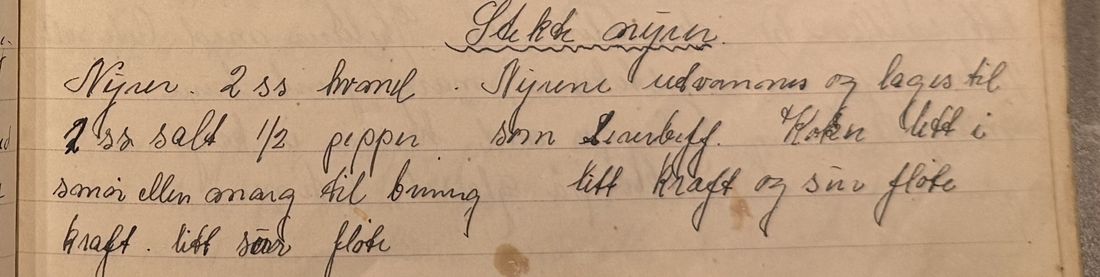 Stekte nyrer.
Nyrer. 2 ss hvmel. Nyrene udvannes og lages til
2 ss salt 1/2 pepper som Leverbeff. Koker litt i
smør eller marg til bruning litt kraft og sur fløte
kraft. litt sur fløte